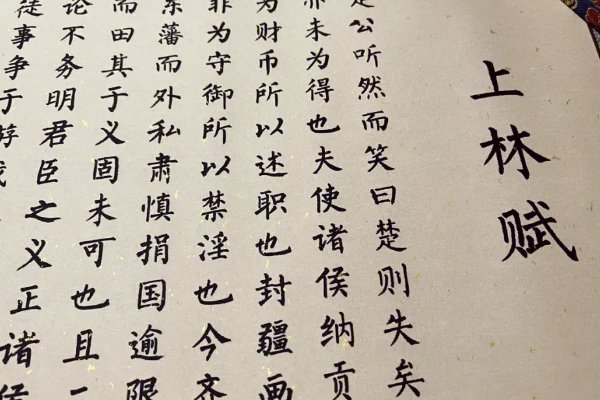 上林赋
是公听然而笑曰楚则失矣
亦未为得也夫使诸侯纳贡
为财币所以述职也封疆画
非为守御所以禁淫也今齐
东藩而外私肃慎捐国逾限
而田其于义固未可也且
论不务明君臣之义正诸侯
徒事争于